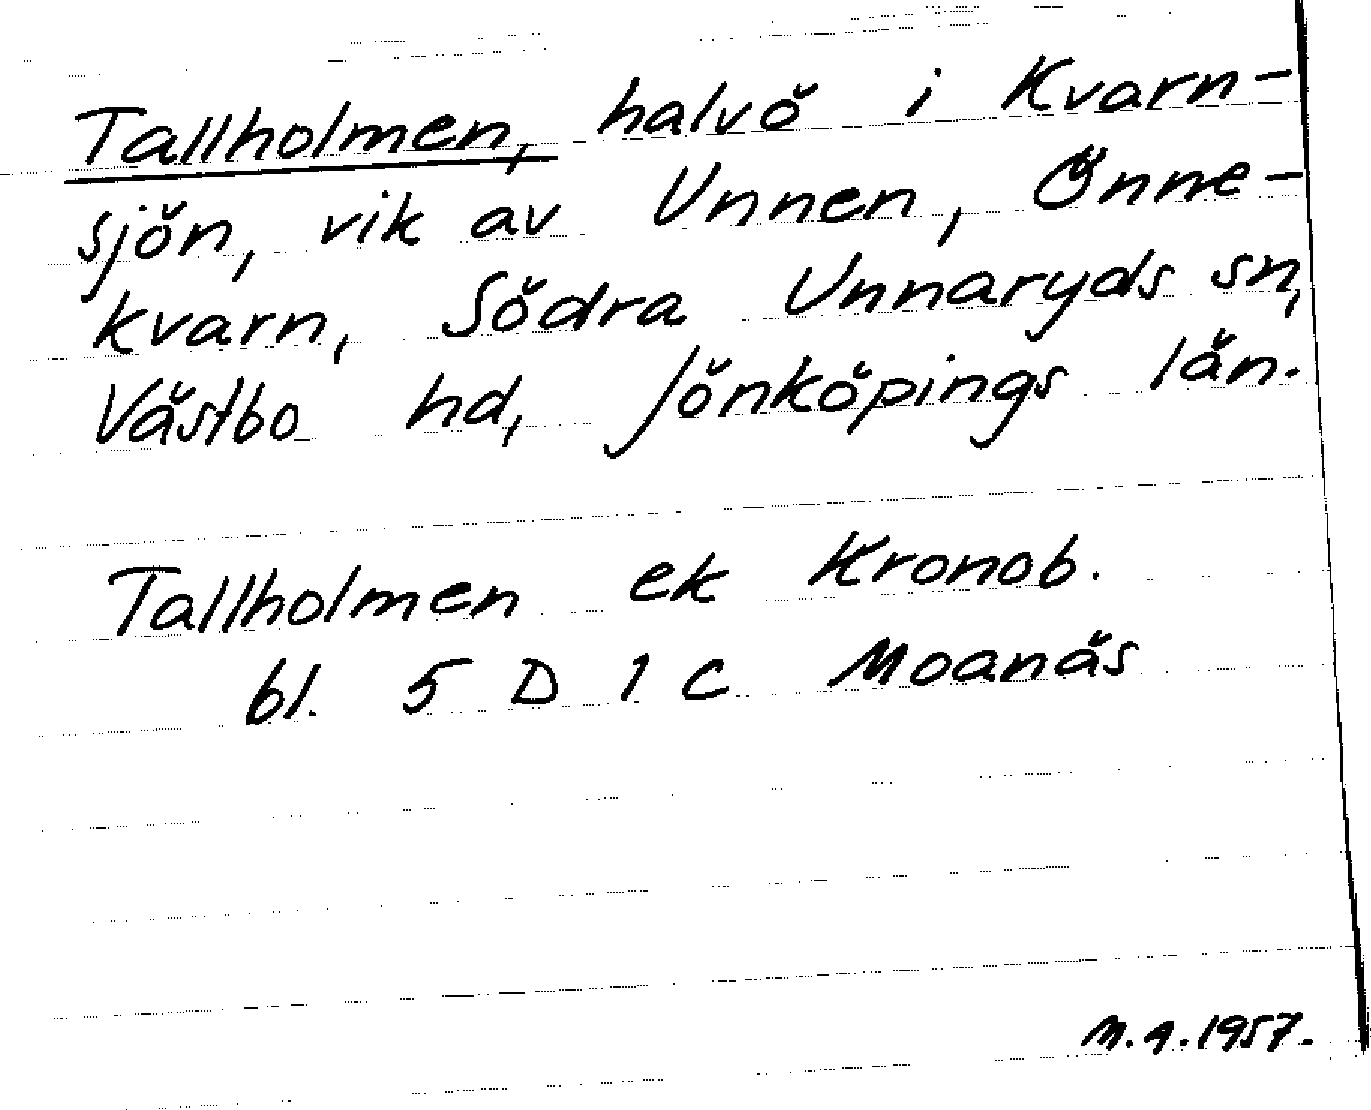 Tallholmen, halvö i Kvarn-
sjön, vik av Unnen, Önne-
kvarn, Södra Unnaryds sn,
Västbo hd, Jönköpings län.
Tallholmen ek Kronob.
bl. 5 D 1 c Moanäs
M.A.1957.